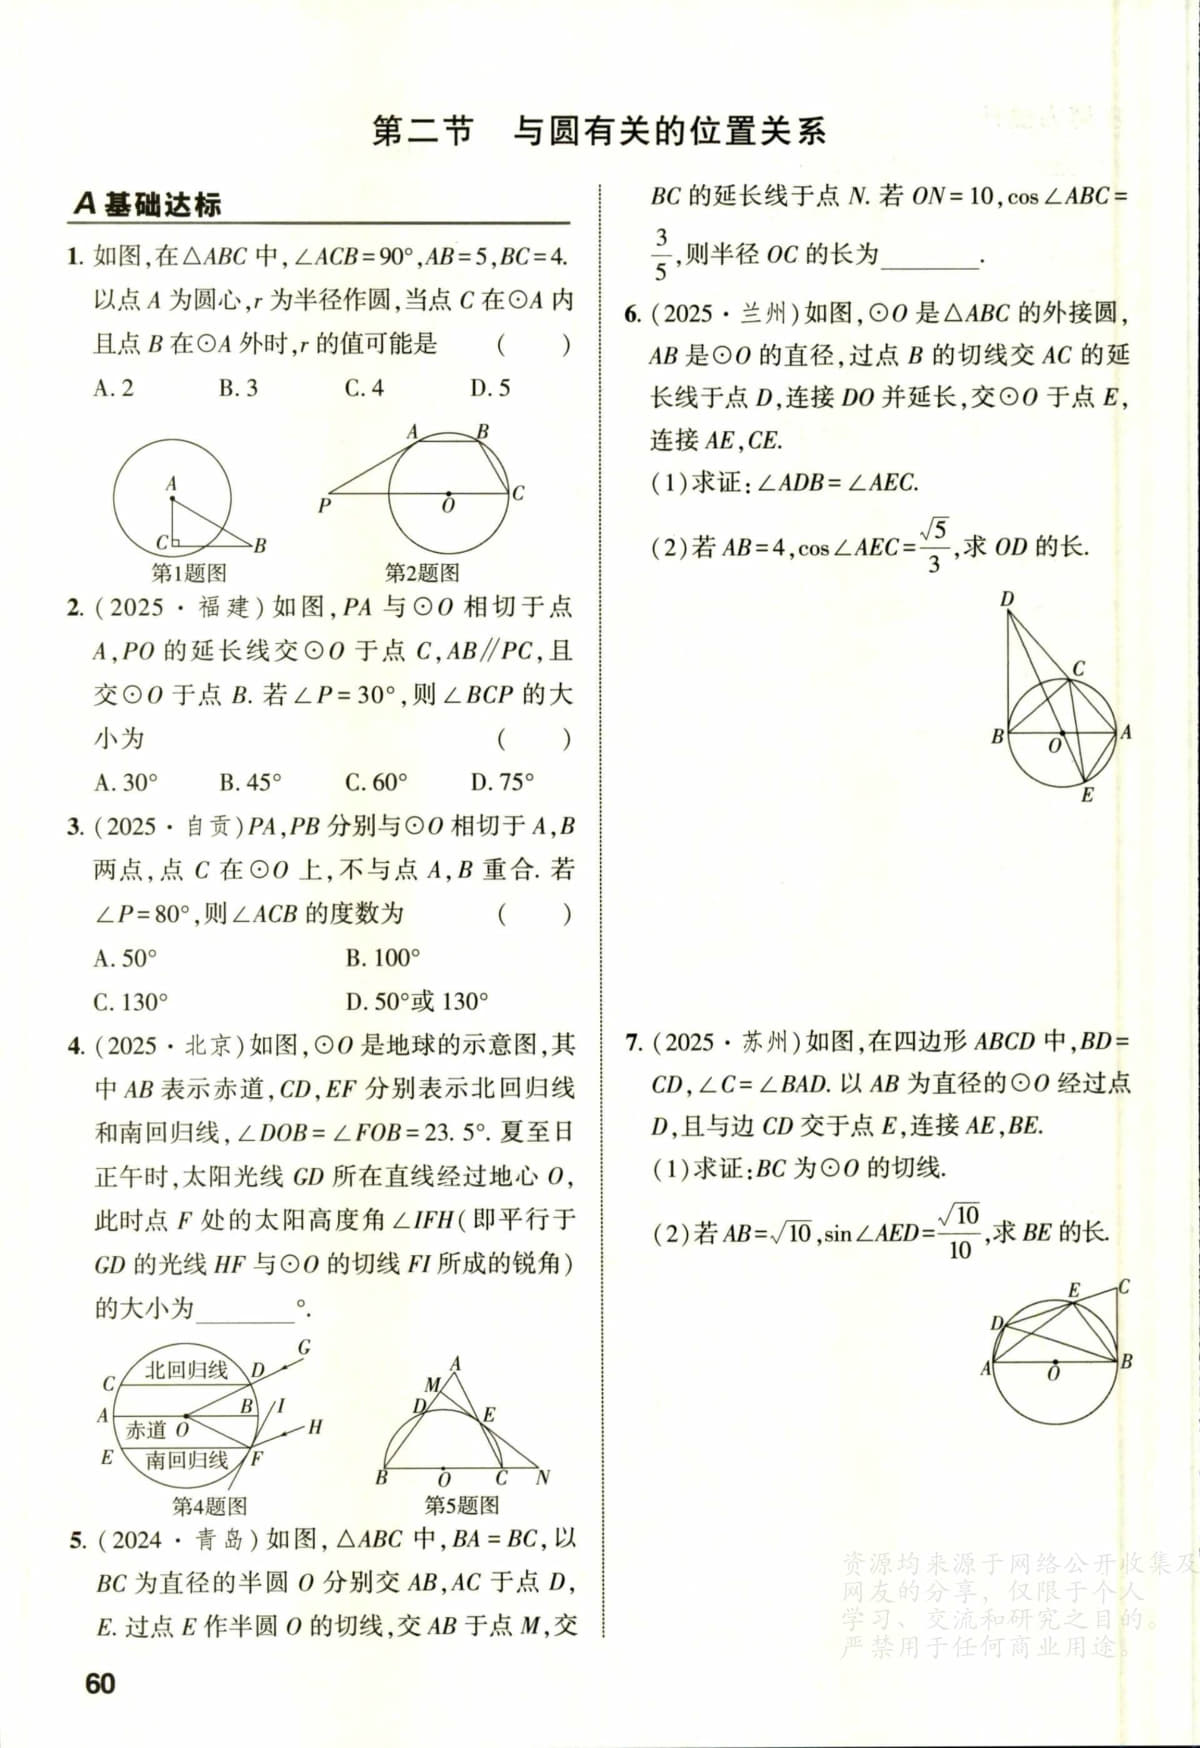 第二节 与圆有关的位置关系
A 基础达标
1. 如图,在△ABC 中,∠ACB=90°,AB=5,BC=4.
以点 A 为圆心,r 为半径作圆,当点 C 在⊙A 内
且点 B 在⊙A 外时,r 的值可能是 ( )
A. 2 B. 3 C. 4 D. 5
A
C
B
第1题图
A
B
P
O
C
第2题图
2. (2025·福建)如图,PA 与⊙O 相切于点
A,PO 的延长线交⊙O 于点 C,AB∥PC,且
交⊙O 于点 B. 若∠P=30°,则∠BCP 的大
小为 ( )
A. 30° B. 45° C. 60° D. 75°
3. (2025·自贡)PA,PB 分别与⊙O 相切于 A,B
两点,点 C 在⊙O 上,不与点 A,B 重合. 若
∠P=80°,则∠ACB 的度数为 ( )
A. 50° B. 100°
C. 130° D. 50°或 130°
4. (2025·北京)如图,⊙O 是地球的示意图,其
中 AB 表示赤道,CD,EF 分别表示北回归线
和南回归线,∠DOB=∠FOB=23. 5°. 夏至日
正午时,太阳光线 GD 所在直线经过地心 O,
此时点 F 处的太阳高度角∠IFH(即平行于
GD 的光线 HF 与⊙O 的切线 FI 所成的锐角)
的大小为________°.
G
C 北回归线 D
A B I
赤道 O H
E 南回归线 F
第4题图
A
M
D
E
B O C N
第5题图
5. (2024·青岛)如图,△ABC 中,BA=BC,以
BC 为直径的半圆 O 分别交 AB,AC 于点 D,
E. 过点 E 作半圆 O 的切线,交 AB 于点 M,交
60
BC 的延长线于点 N. 若 ON=10,cos∠ABC=
3/5,则半径 OC 的长为________.
6. (2025·兰州)如图,⊙O 是△ABC 的外接圆,
AB 是⊙O 的直径,过点 B 的切线交 AC 的延
长线于点 D,连接 DO 并延长,交⊙O 于点 E,
连接 AE,CE.
(1)求证:∠ADB=∠AEC.
(2)若 AB=4,cos∠AEC=√5/3,求 OD 的长.
D
C
B
O
A
E
7. (2025·苏州)如图,在四边形 ABCD 中,BD=
CD,∠C=∠BAD. 以 AB 为直径的⊙O 经过点
D,且与边 CD 交于点 E,连接 AE,BE.
(1)求证:BC 为⊙O 的切线.
(2)若 AB=√10,sin∠AED=√10/10,求 BE 的长.
E C
D
A O B
资源均来源于网络公开收集及
网友的分享，仅限于个人
学习、交流和研究之目的。
严禁用于任何商业用途。